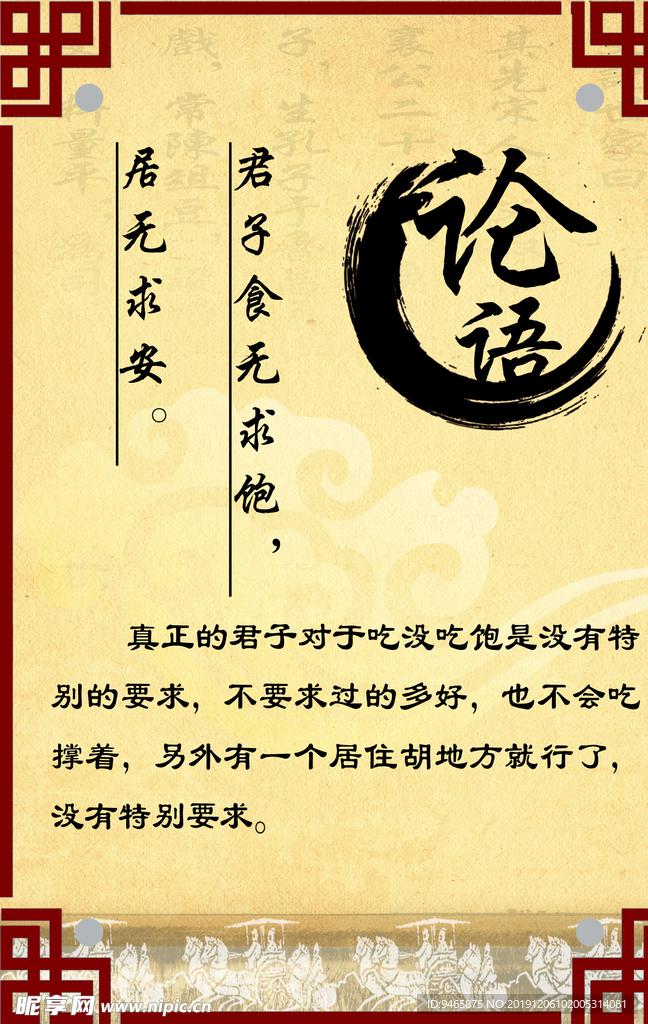 论语
君子食无求饱，
居无求安。
真正的君子对于吃没吃饱是没有特
别的要求，不要求过的多好，也不会吃
撑着，另外有一个居住胡地方就行了，
没有特别要求。
昵享网 www.nipic.cn
ID:9465875 NO:20191206102005314081